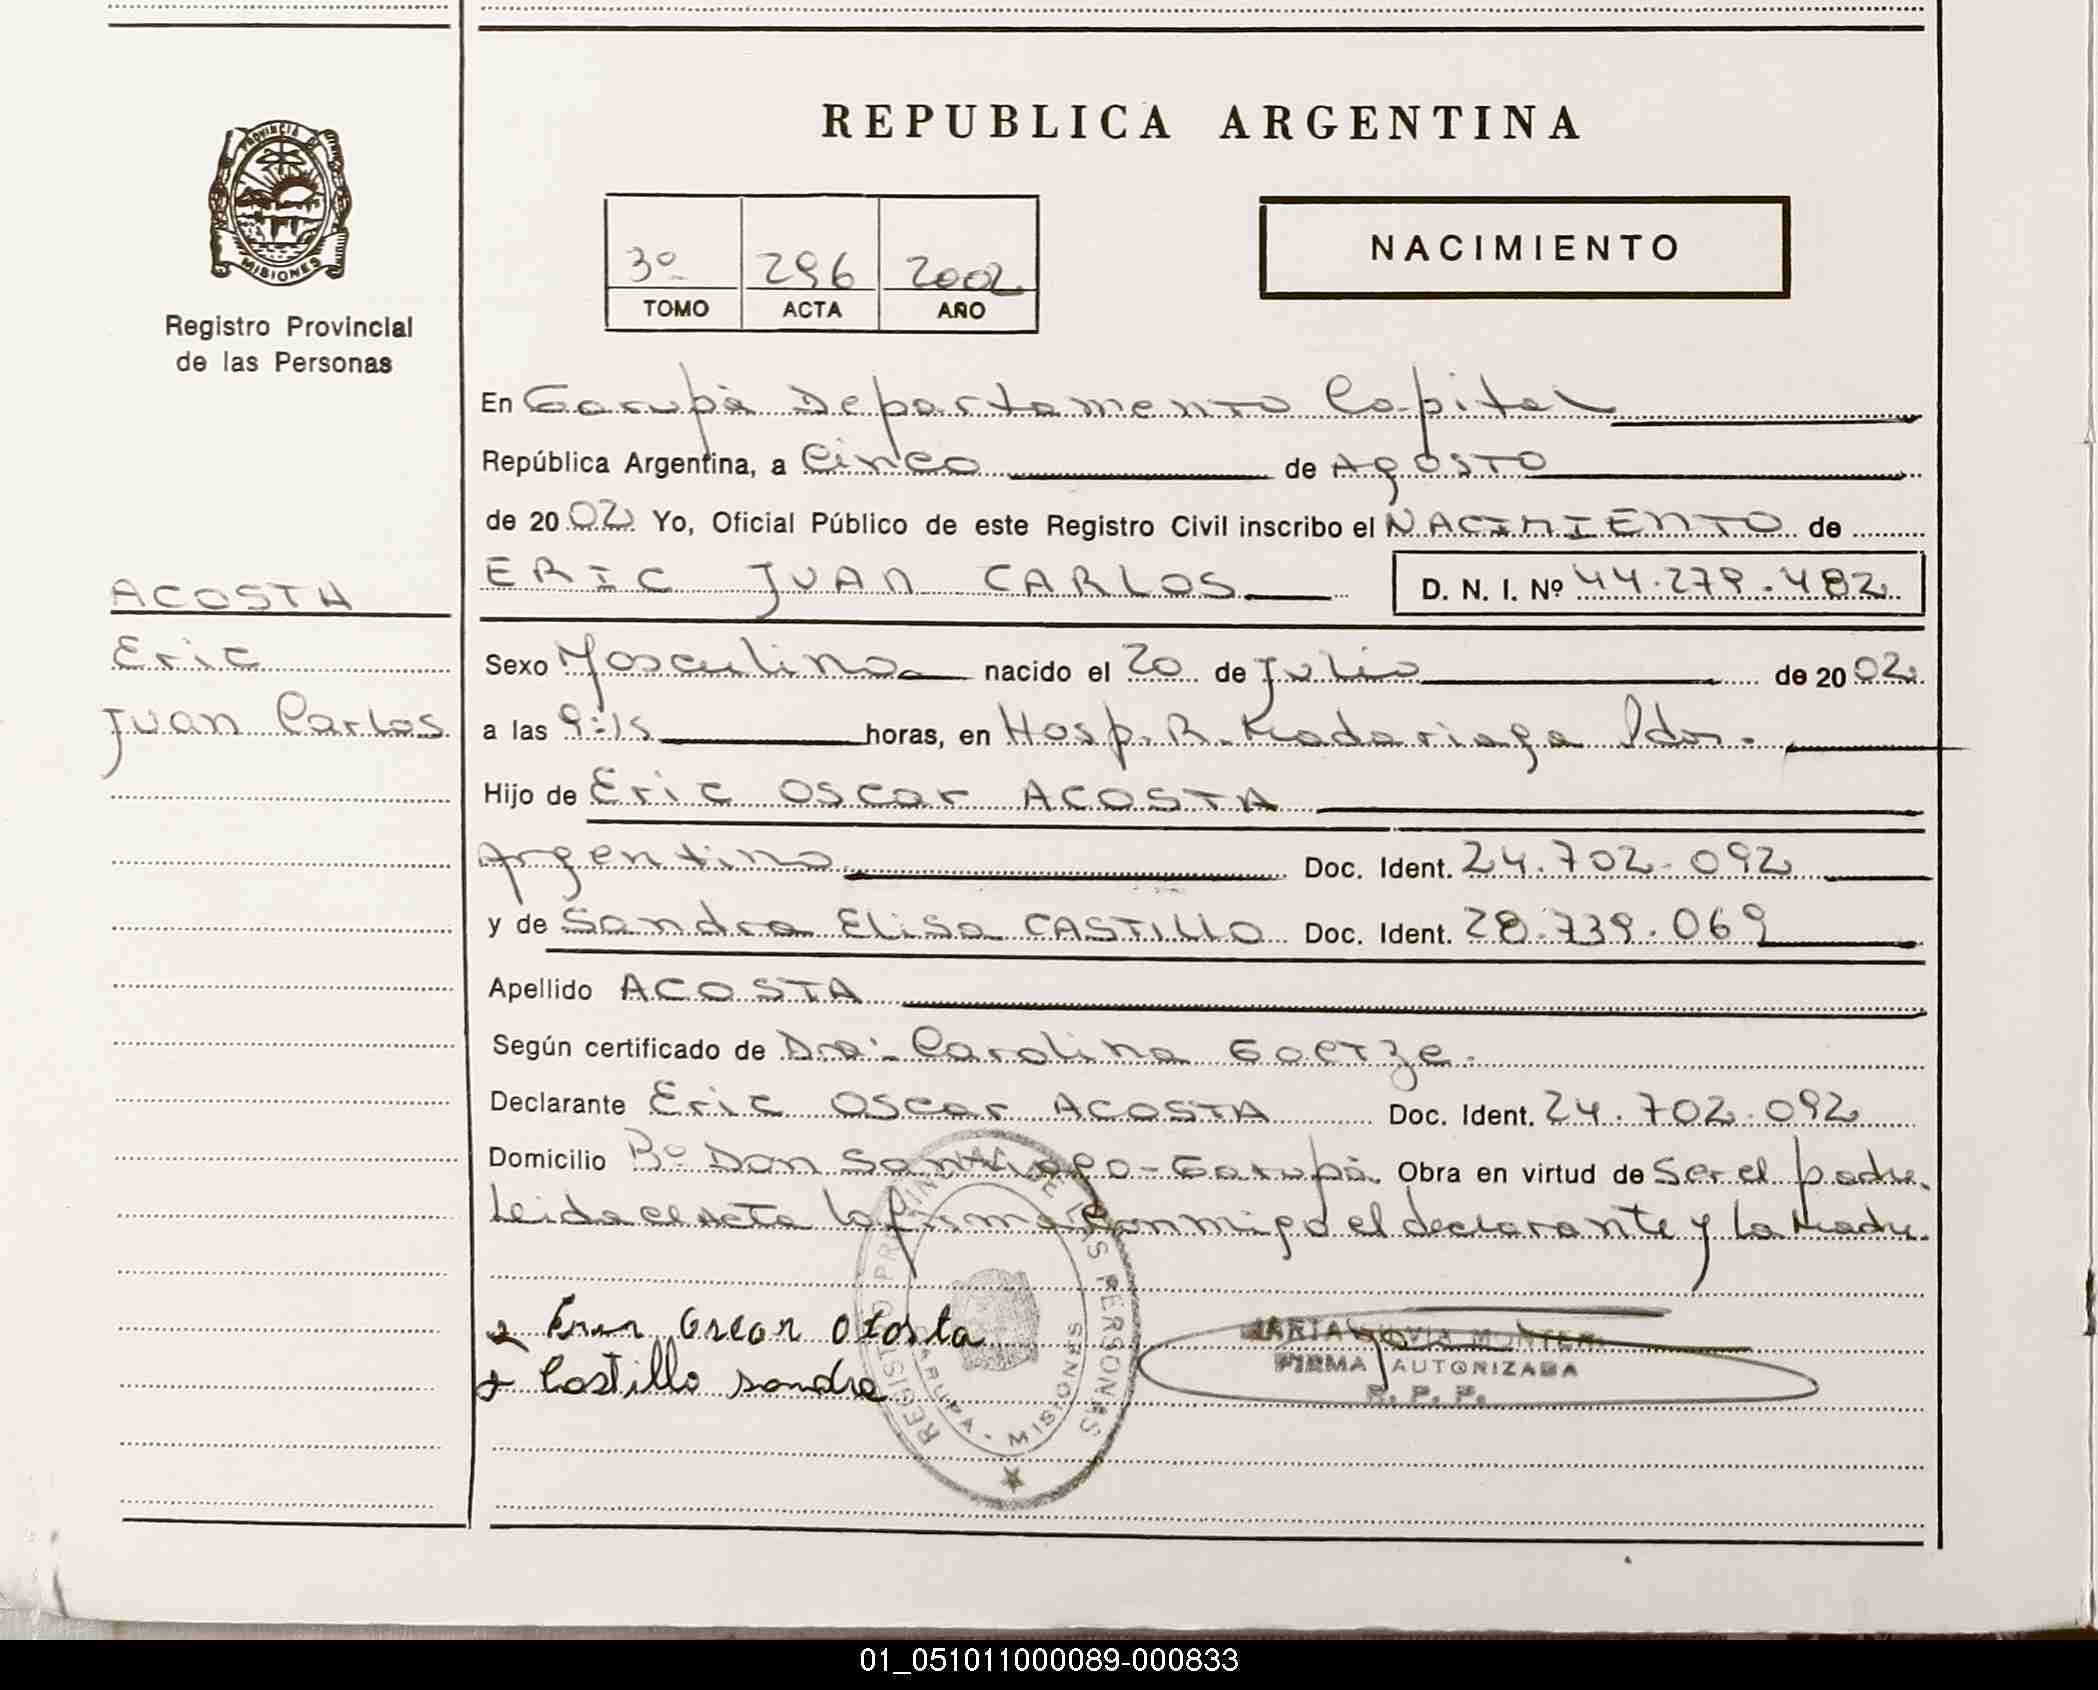 REPUBLICA ARGENTINA
PROVINCIA DE
MISIONES
Registro Provincial
de las Personas
3º 296 2002
TOMO ACTA AÑO
NACIMIENTO
En Garupà Departamento Capital
República Argentina, a Cinco de Agosto
de 2002 Yo, Oficial Público de este Registro Civil inscribo el NACIMIENTO de
ERIC JUAN CARLOS D. N. I. Nº 44.279.482
ACOSTA
Eric
Juan Carlos
Sexo Masculino nacido el 20 de Julio de 2002
a las 9:15 horas, en Hosp. R. Madariaga Pdas.
Hijo de Eric Oscar ACOSTA
Argentino Doc. Ident. 24.702.092
y de Sandra Elisa CASTILLO Doc. Ident. 28.739.069
Apellido ACOSTA
Según certificado de Dra. Carolina Goetze.
Declarante Eric Oscar ACOSTA Doc. Ident. 24.702.092
Domicilio Bº Don Santiago - Garupà Obra en virtud de Ser el padre.
Leida el acta la firma conmigo el declarante y la Madre.
REGISTRO PROVINCIAL DE LAS PERSONAS
GARUPA - MISIONES
Oscar
Castillo Sandra
MARIA SILVIA
FIRMA AUTORIZADA
R. P. P.
01_051011000089-000833